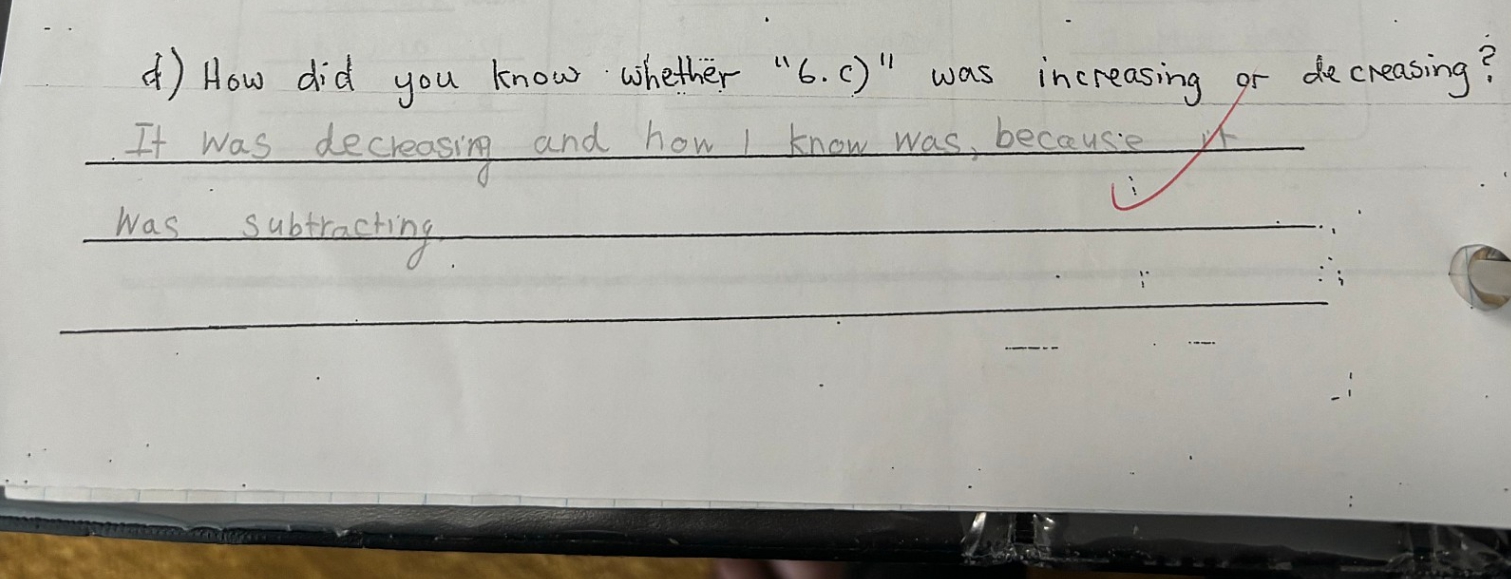 d) How did you know whether "6. c)" was increasing or decreasing?
It was decreasing and how I know was, because it
was subtracting